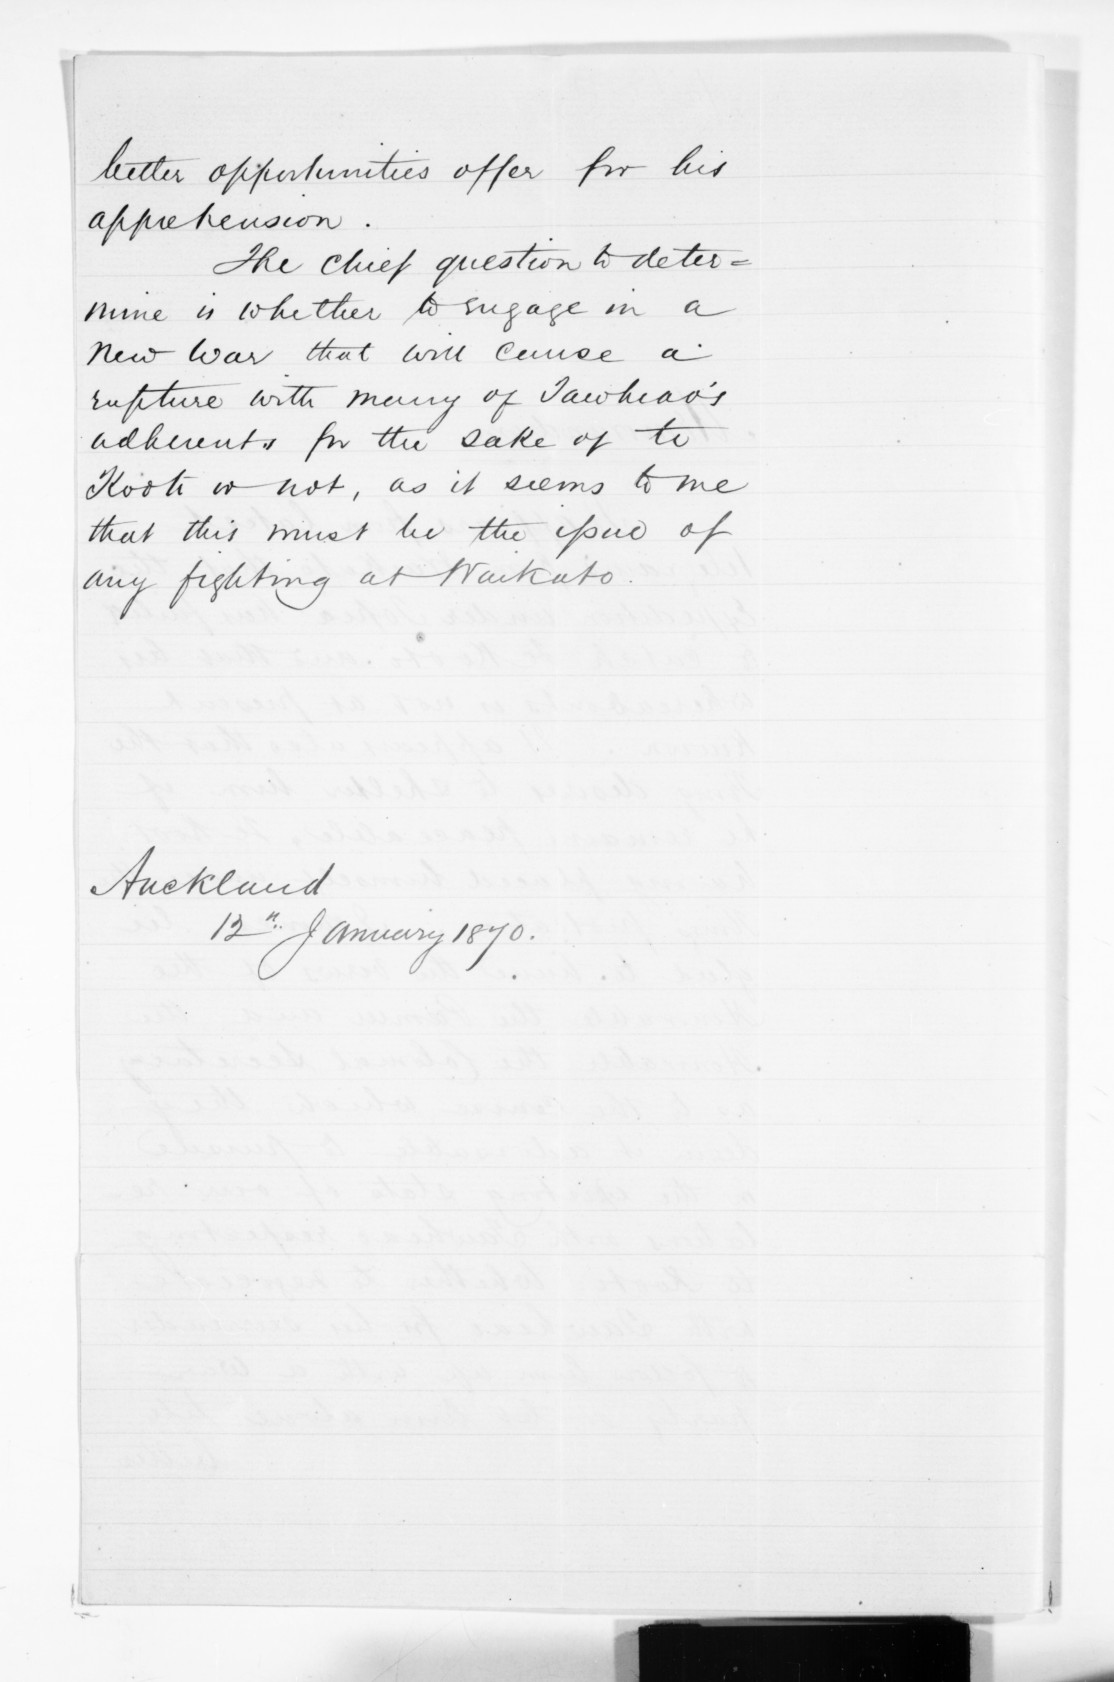 better opportunities offer for his
apprehension.
The chief question to deter=
mine is whether to engage in a
new war that will cause a
rupture with many of Tawhiao's
adherents for the sake of te
Kooti or not, as it seems to me
that this must be the issue of
any fighting at Waikato.
Auckland
12th January 1870.